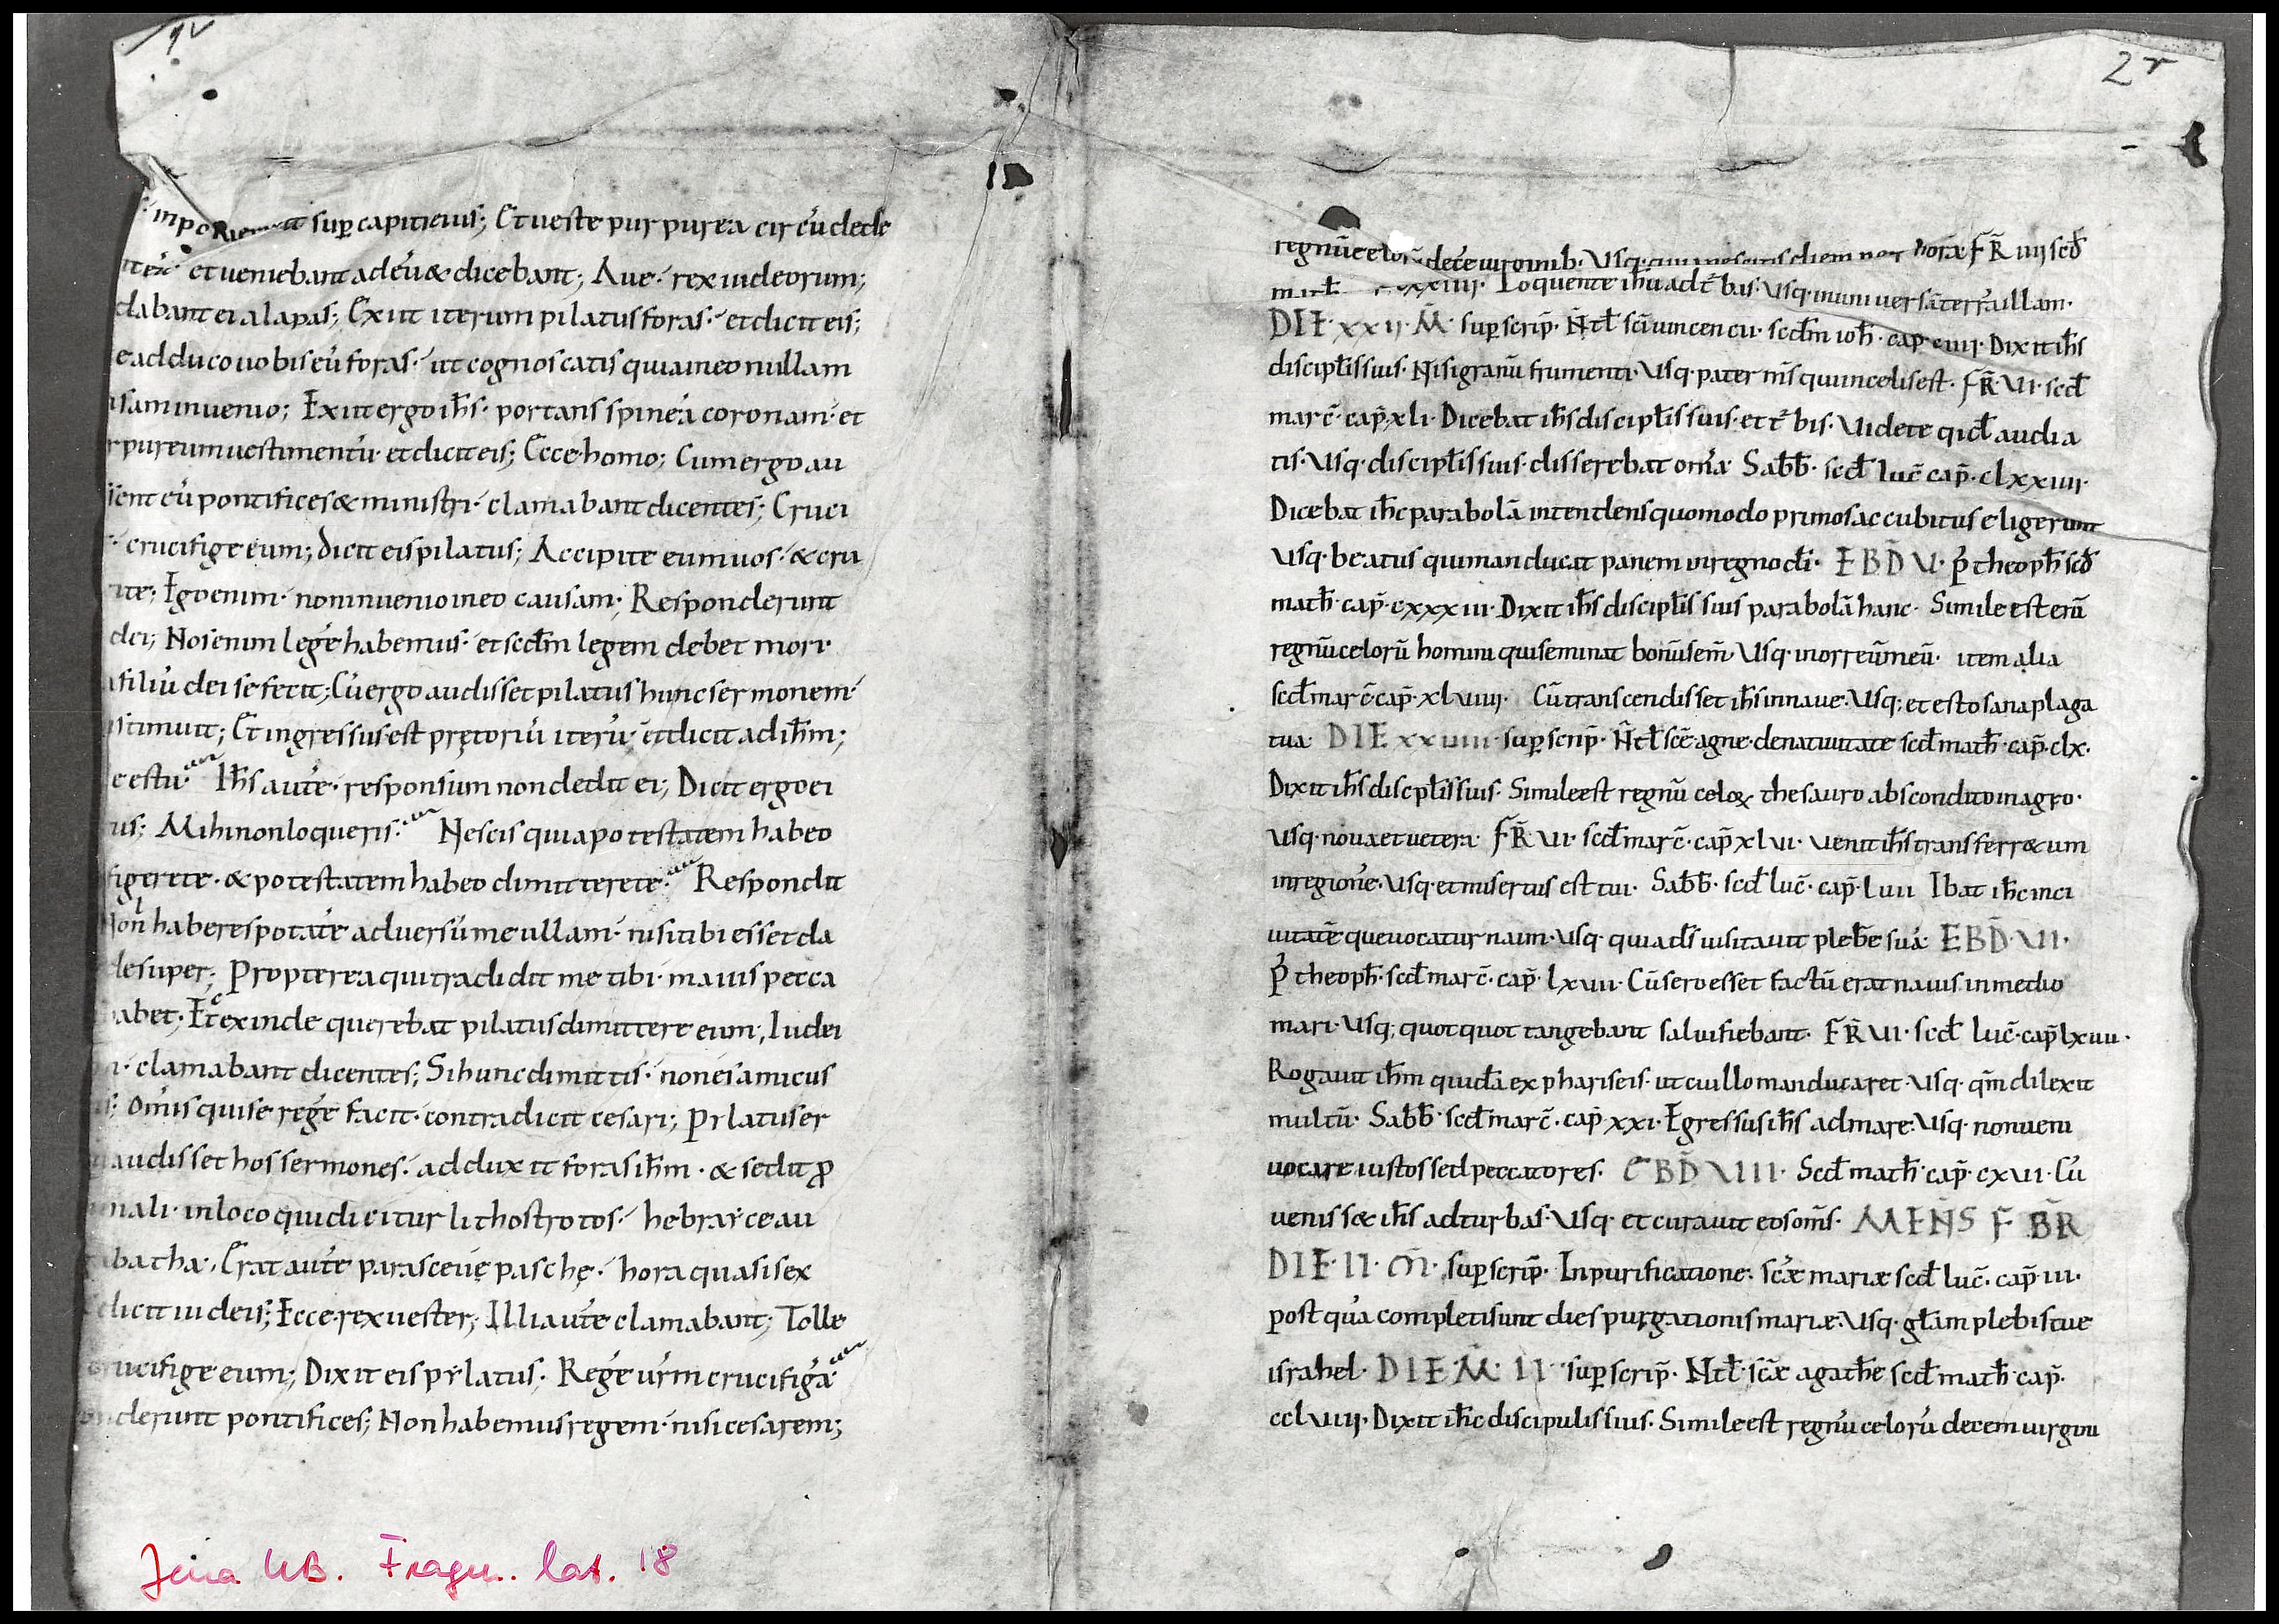 1v
inponerent sup capiti eius; Et ueste purpurea circūdede
et ueniebant ad eū & dicebant; Aue rex iudeorum;
dabant ei alapas; Exiit iterum pilatus foras et dicit eis;
e adduco uobis eū foras ut cognoscatis quia in eo nullam
usam inuenio; Exiit ergo ih̄s portans spineā coronam et
rpureum uestimentū et dicit eis; Ecce homo; Cum ergo au
issent eū pontifices & ministri clamabant dicentes; Cruci
crucifige eum; dicit eis pilatus; Accipite eum uos & cru
ite; Ego enim non inuenio in eo causam; Responderunt
dei; Nos enim legē habemus et scđm legem debet mori
a filiū dei se fecit; Cū ergo audisset pilatus hunc sermonem
is timuit; Et ingressus est pretoriū iterū et dicit ad ih̄m;
e es tu Ih̄s autē responsum non dedit ei; Dicit ergo ei
tus; Mihi non loqueris Nescis quia potestatem habeo
figere te & potestatem habeo dimittere te Respondit
Non haberes potatē aduersū me ullam nisi tibi esset da
desuper; Propterea qui tradidit me tibi maius pecca
habet; Et exinde querebat pilatus dimittere eum, Iudei
clamabant dicentes; Si hunc dimittis non es amicus
is; Om̄is qui se regē facit contradicit cesari; Pilatus er
audisset hos sermones adduxit foras ih̄m & sedit ꝓ
unali in loco qui dicitur lithostrotos hebraice au
abatha, Erat autē parasceue pasche hora quasi sex
dicit iudeis; Ecce rex uester; Illi autē clamabant; Tolle
crucifige eum; Dixit eis pylatus Regē ur̄m crucifigā
onderunt pontifices; Non habemus regem nisi cesarem;
Jena UB. Fragm. lat. 18
2r
regnū celorū decē uirginib. Usq. horæ FR̄ IIII scđ
Loquente ih̄u ad t̄bas Usq. in uniuersā terrā illam.
DIE XXII M̄ sup scrip̄ Nt̄l sc̄i uincencii scđm ioh̄ cap̄ cIIII Dixit ih̄s
discipl̄is suis Nisi granū frumenti Usq. pater m̄s qui in celis est FR̄ VI scđ
marc̄ cap̄ xli Dicebat ih̄s discipl̄is suis et t̄bis Videte qid audia
tis Usq. discipl̄is suis disserebat om̄ia Sab̄b scđ luc̄ cap̄ clxxIIII
Dicebat ih̄c parabolā intendens quomodo primos accubitus eligerunt
Usq. beatus qui manducat panem in regno dī EBD̄ V P̄ theoph̄ scđ
math̄ cap̄ cxxxIII Dixit ih̄s discipl̄is suis parabolā hanc Simile est enī
regnū celorū homini qui seminat bonū sem̄ Usq. in orreū meū item alia
scđ marc̄ cap̄ xlVIIII Cū transcendisset ih̄s in naue Usq; et esto sana plaga
tua DIE XXVIII sup scrip̄ Nt̄l sc̄e agne de natiuitate scđ math̄ cap̄ clx
Dixit ih̄s discpl̄is suis Simile est regnū celoꝝ thesauro abscondito in agro
Usq. noua et uetera FR̄ VI scđ marc̄ cap̄ xlVI uenit ih̄s trans ferr& um
in regionē Usq. et misertus est tui Sab̄b scđ luc̄ cap̄ lVII Ibat ih̄c in ci
uitatē que uocatur naim Usq. quia dīs uisitauit plebē suā EBD̄ VII
P̄ theoph̄ scđ marc̄ cap̄ lxVII Cū sero esset factū erat nauis in medio
mari Usq; quotquot tangebant salui fiebant FR̄ VI scđ luc̄ cap̄ lxVIII
Rogauit ih̄m quidā ex phariseis ut cū illo manducaret Usq. qm̄ dilexit
multū Sab̄b scđ marc̄ cap̄ xxI Egressus ih̄s ad mare Usq. non ueni
uocare iustos sed peccatores EBD̄ VIII Scđ math̄ cap̄ cxVI Cū
ueniss& ih̄s ad turbas Usq. et curauit eos om̄s MENS FBR̄
DIE II M̄ sup scrip̄ In purificatione sc̄æ mariæ scđ luc̄ cap̄ III
post quā completi sunt dies purgationis mariæ Usq. gl̄am plebis tue
israhel DIE M̄ II sup scrip̄ Nt̄l sc̄æ agathe scđ math̄ cap̄
cclVIIII Dixit ih̄c discipulis suis Simile est regnū celorū decem uirgini